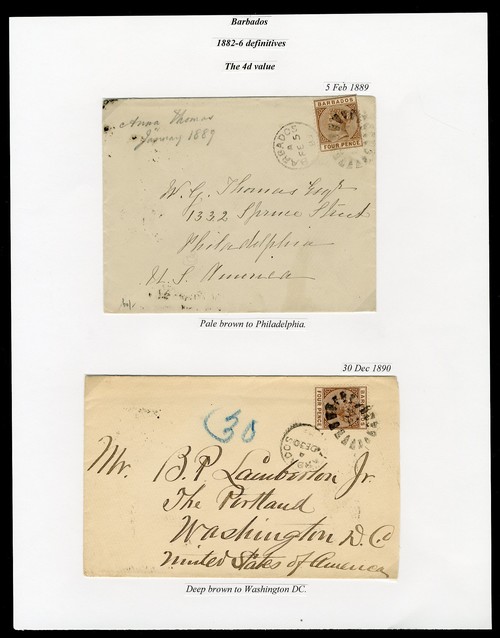 Barbados
1882-6 definitives
The 4d value
5 Feb 1889
Anna Thomas
January 1889
BARBADOS
FE 5
BARBADOS
FOUR PENCE
W. G. Thomas Esqr
1332 Spruce Street
Philadelphia
U. S. America
Pale brown to Philadelphia.
30 Dec 1890
30
FOUR PENCE
DE 30
Mr. B. P. Lamberton Jr.
The Portland
Washington D. C.
United States of America
Deep brown to Washington DC.